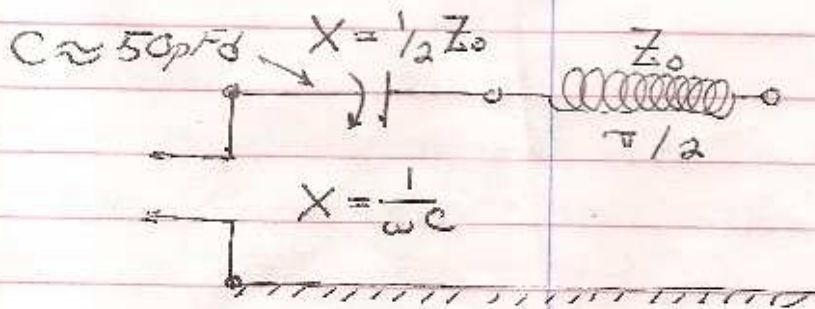 C ≈ 50pFd X = 1/2 Z₀ Z₀
π/2
X = 1/ωC